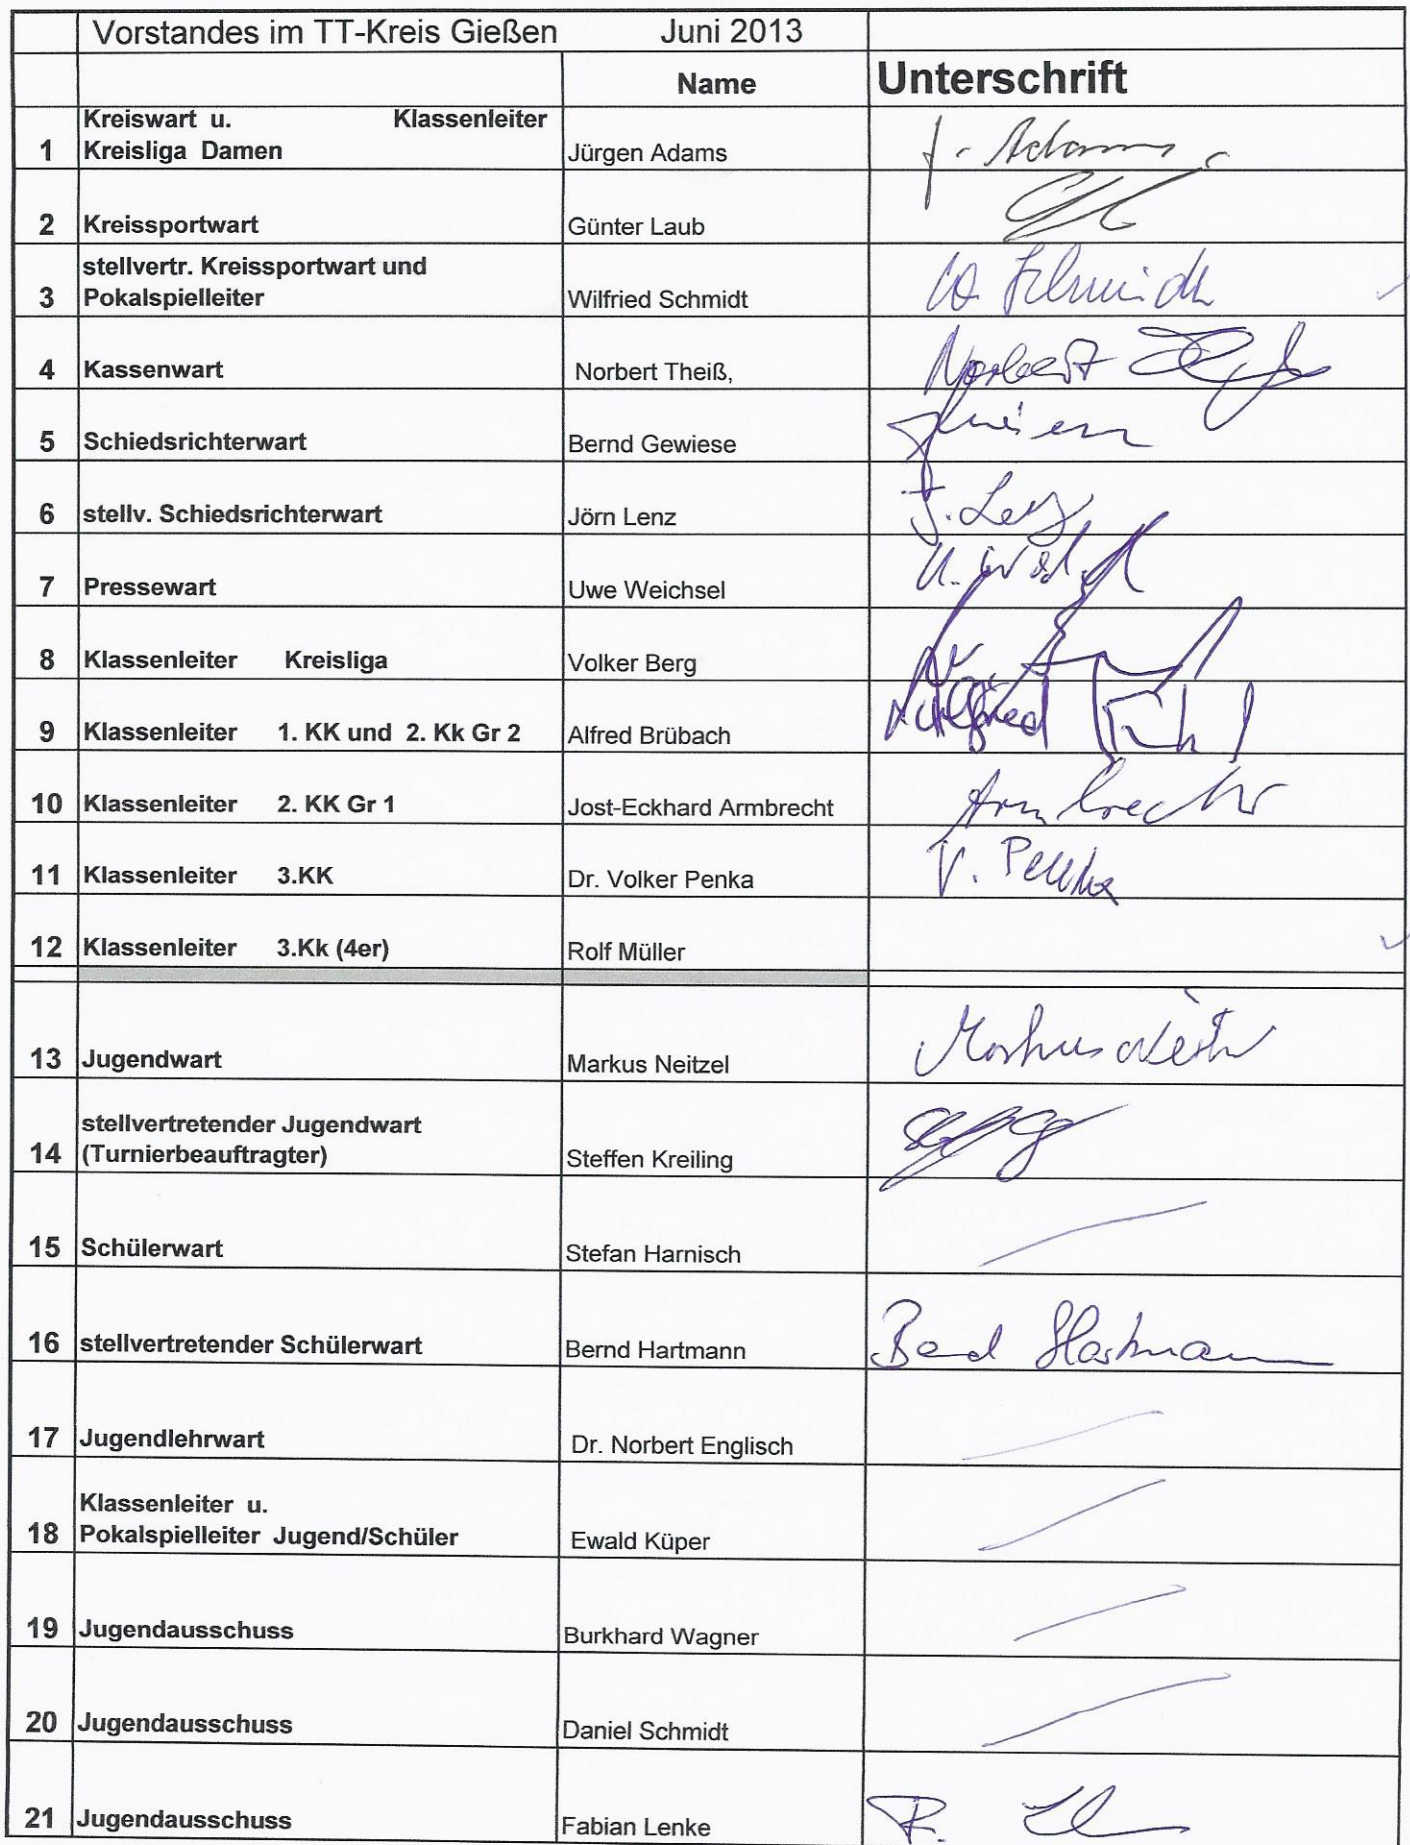 Vorstandes im TT-Kreis Gießen Juni 2013
Name Unterschrift
Kreiswart u. Klassenleiter
1 Kreisliga Damen Jürgen Adams J. Adams
2 Kreissportwart Günter Laub
stellvertr. Kreissportwart und
3 Pokalspielleiter Wilfried Schmidt W. Schmidt
4 Kassenwart Norbert Theiß, Norbert
5 Schiedsrichterwart Bernd Gewiese
6 stellv. Schiedsrichterwart Jörn Lenz J. Lenz
7 Pressewart Uwe Weichsel U.
8 Klassenleiter Kreisliga Volker Berg
9 Klassenleiter 1. KK und 2. Kk Gr 2 Alfred Brübach Alfred
10 Klassenleiter 2. KK Gr 1 Jost-Eckhard Armbrecht Armbrecht
11 Klassenleiter 3.KK Dr. Volker Penka V. Penka
12 Klassenleiter 3.Kk (4er) Rolf Müller
13 Jugendwart Markus Neitzel Markus
stellvertretender Jugendwart
14 (Turnierbeauftragter) Steffen Kreiling
15 Schülerwart Stefan Harnisch
16 stellvertretender Schülerwart Bernd Hartmann Bernd Hartmann
17 Jugendlehrwart Dr. Norbert Englisch
Klassenleiter u.
18 Pokalspielleiter Jugend/Schüler Ewald Küper
19 Jugendausschuss Burkhard Wagner
20 Jugendausschuss Daniel Schmidt
21 Jugendausschuss Fabian Lenke F.